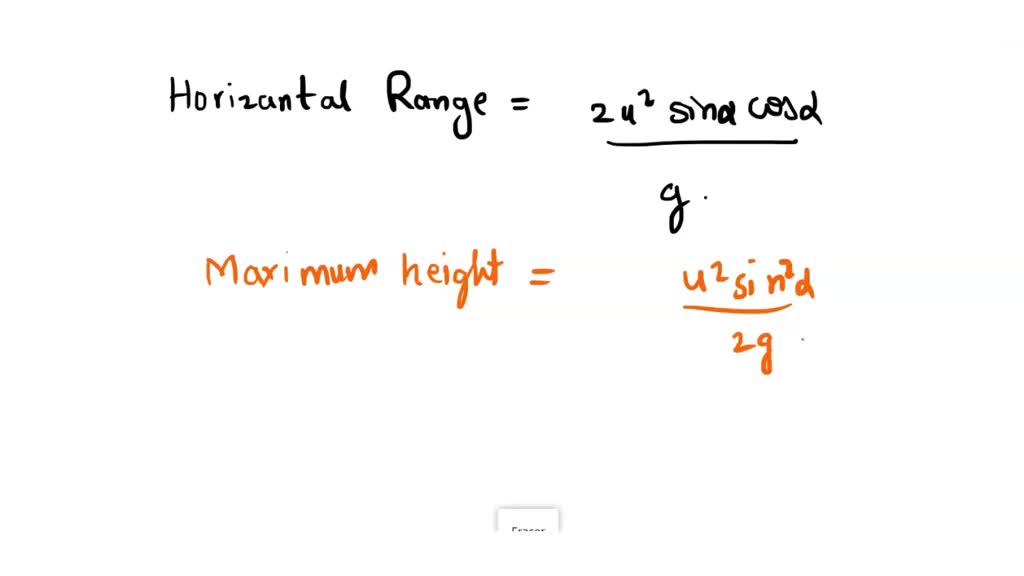 Horizantal Range = 2u² sinα cosα
g.
Maximum height = u² sin²α
2g